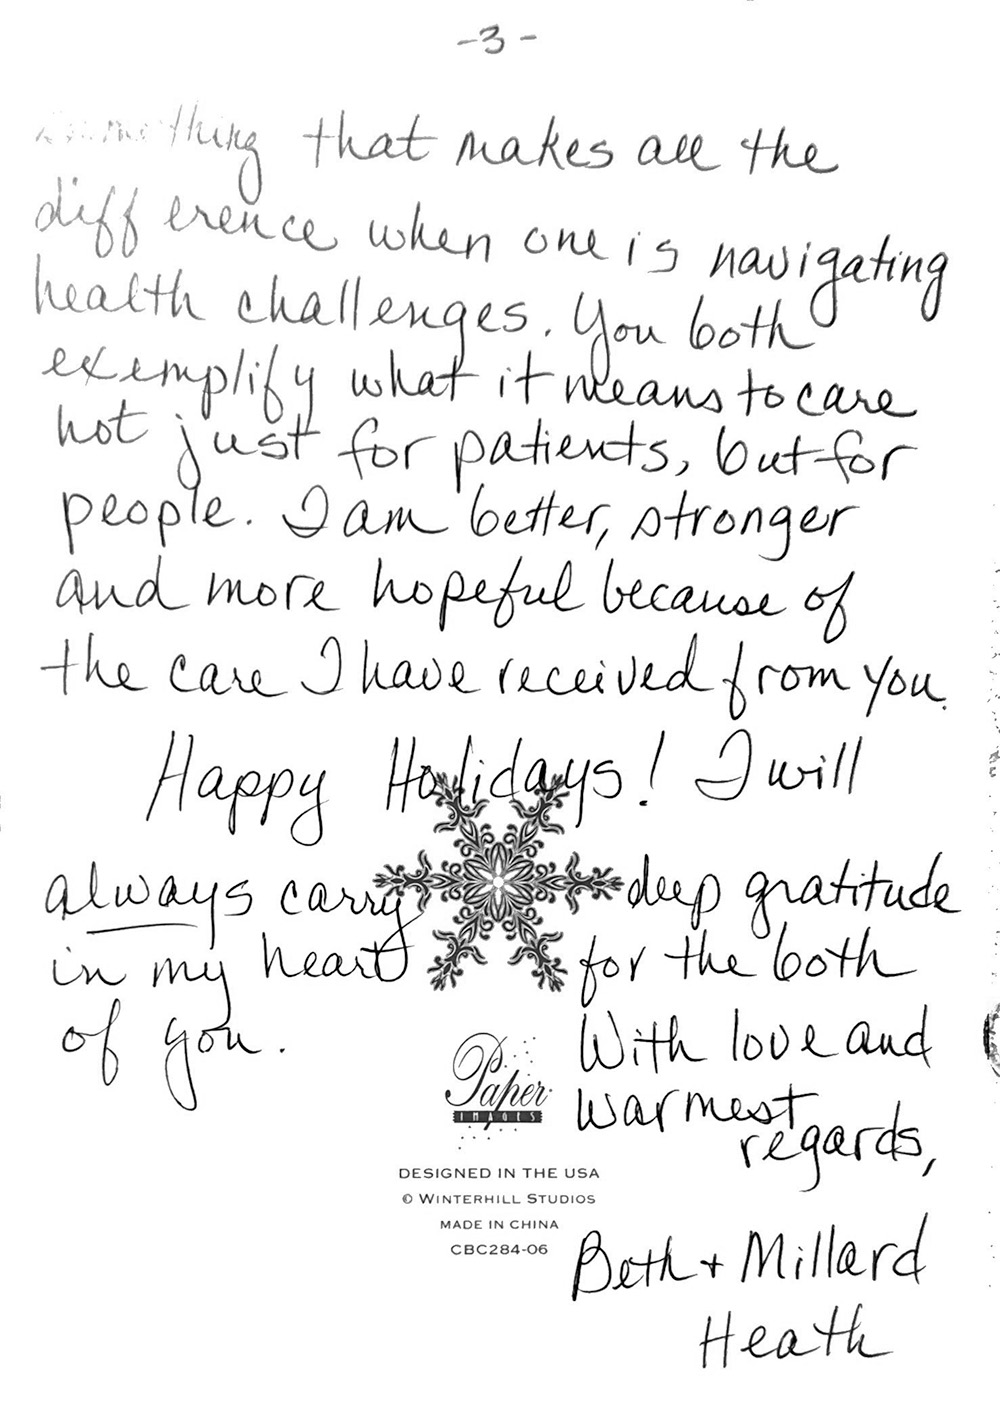 -3-
Something that makes all the
difference when one is navigating
health challenges. You both
exemplify what it means to care
not just for patients, but for
people. I am better, stronger
and more hopeful because of
the care I have received from you.
Happy Holidays! I will
always carry deep gratitude
in my heart for the both
of you.
With love and
warmest
regards,
Beth + Millard
Heath
Paper
IMAGES
DESIGNED IN THE USA
© WINTERHILL STUDIOS
MADE IN CHINA
CBC284-06